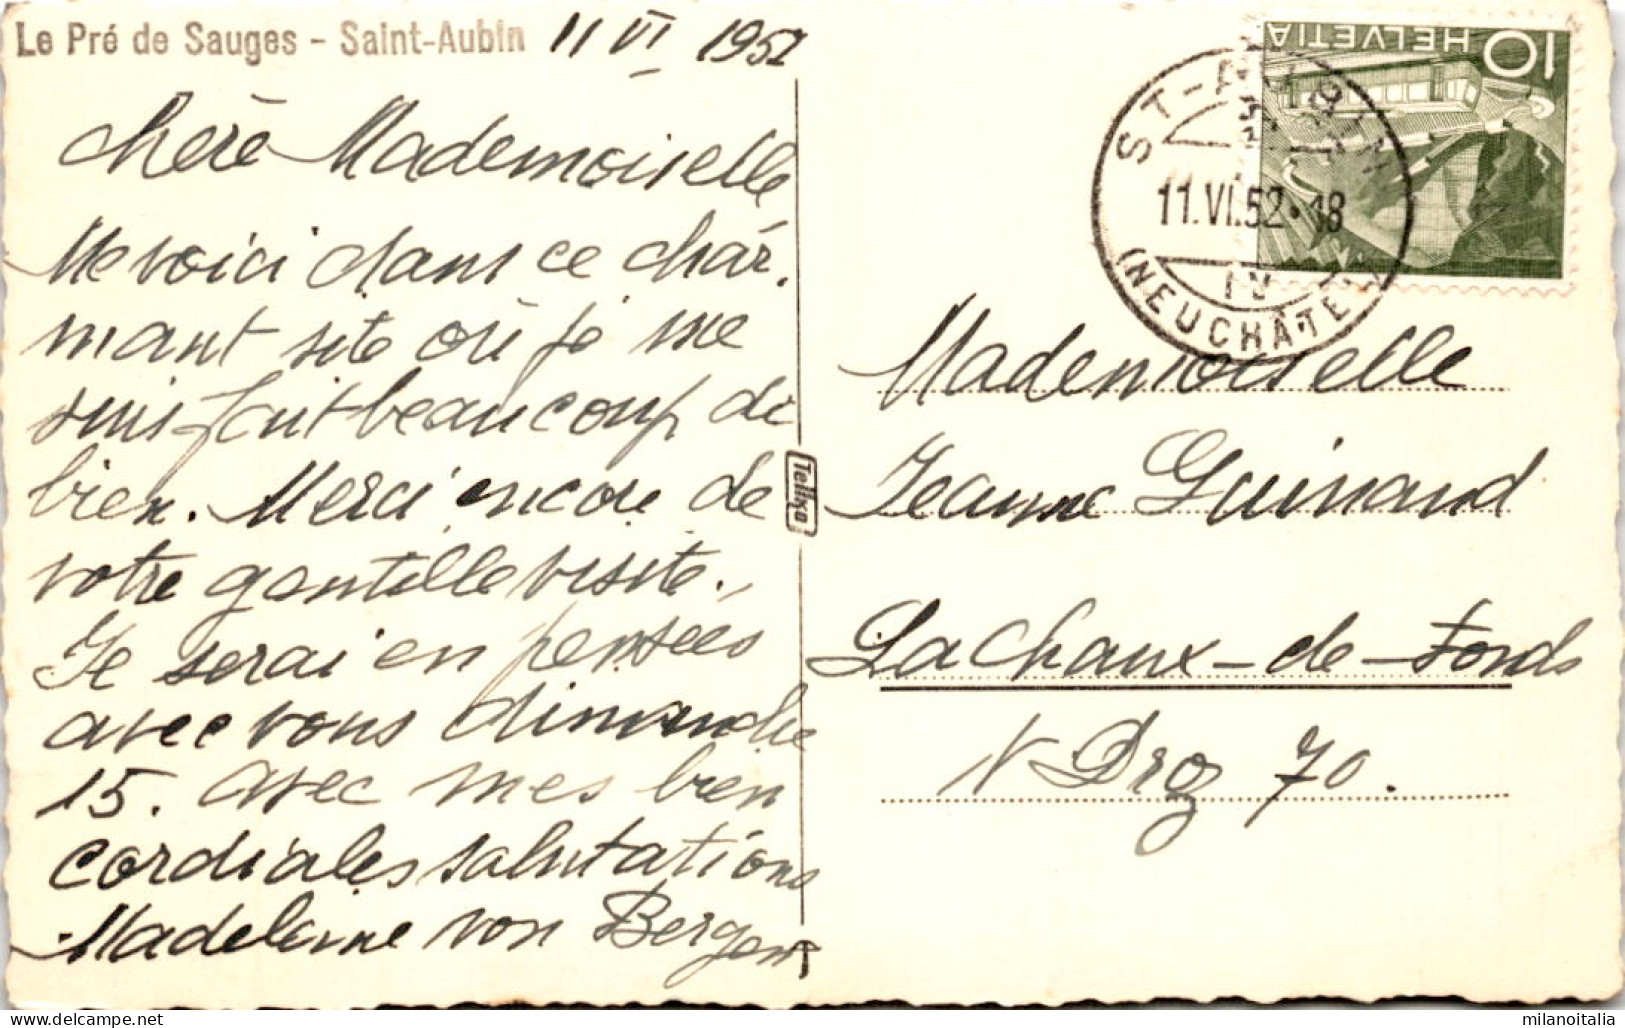 Le Pré de Sauges - Saint-Aubin 11 VI 1952
Chère Mademoiselle
Me voici dans ce char.
mant site où je me
suis fait beaucoup de
bien. Merci encore de
votre gentille visite.
Je serai en pensées
avec vous dimanche
15. avec mes bien
cordiales salutations
Madeleine von Bergen
Tellko
HELVETIA 10
ST-AUBIN
11.VI.52-18
(NEUCHÂTEL)
Mademoiselle
Jeanne Guinand
La Chaux-de-Fonds
N Droz 70.
delcampe.net
milanoitalia